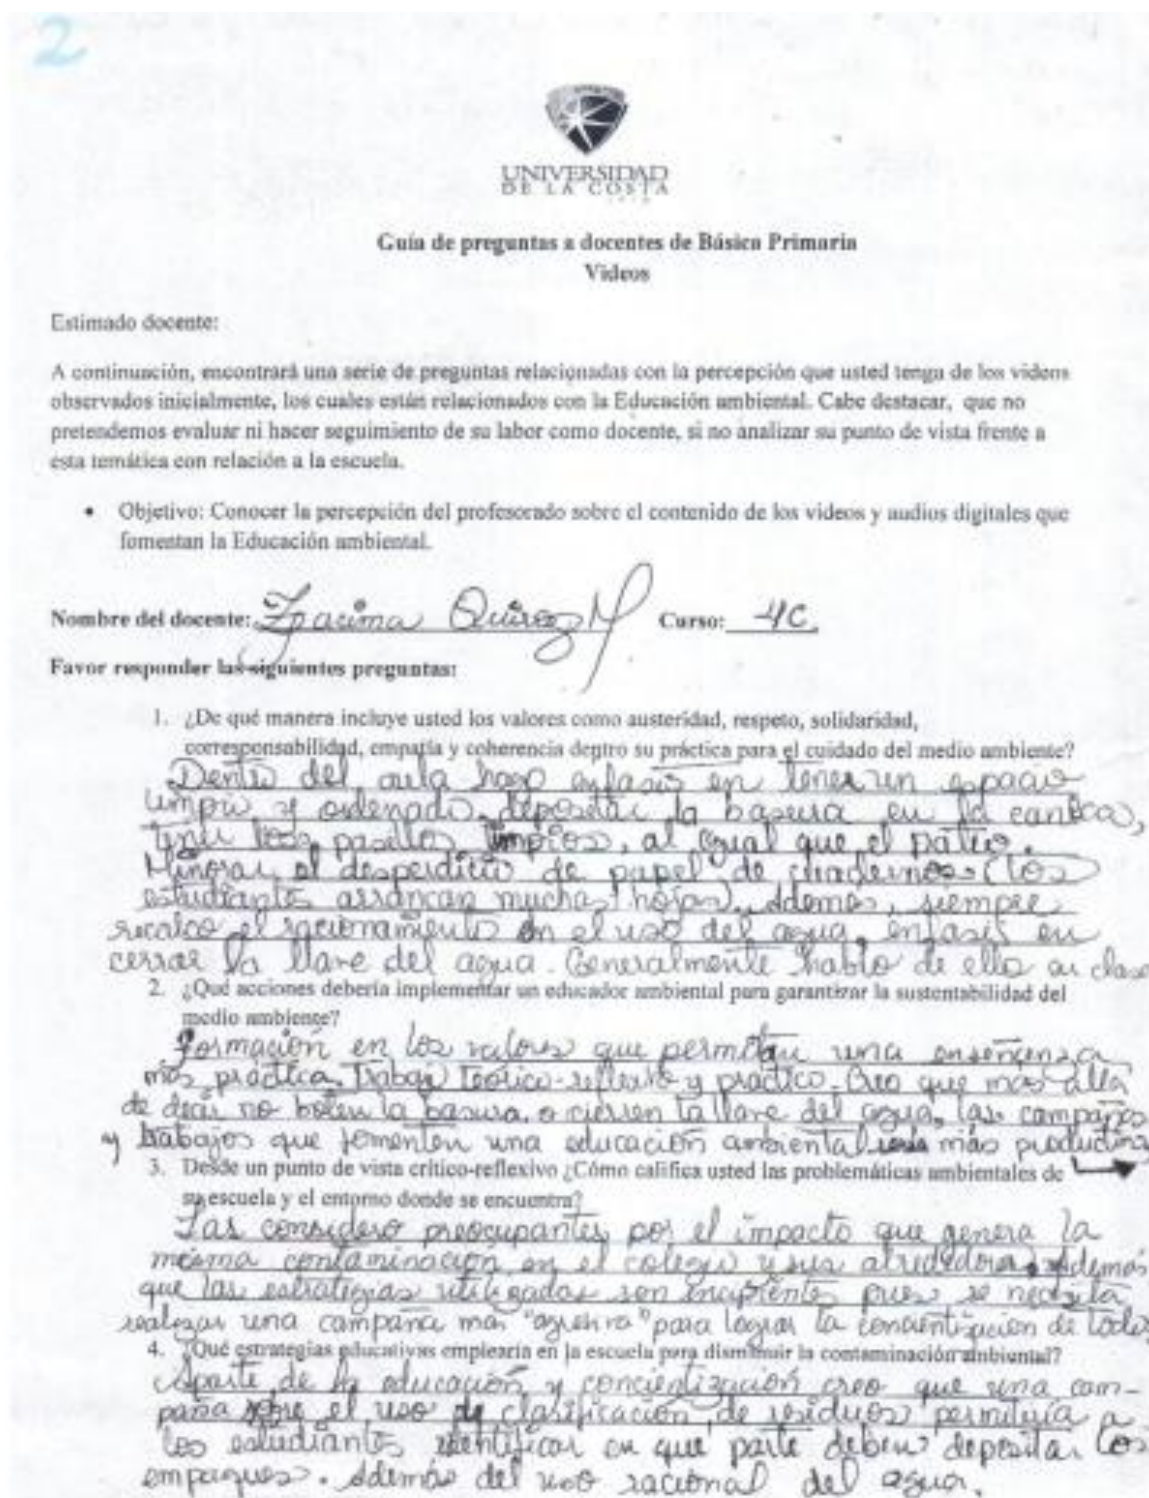 2
UNIVERSIDAD
DE LA COSTA
1970
Guía de preguntas a docentes de Básica Primaria
Videos
Estimado docente:
A continuación, encontrará una serie de preguntas relacionadas con la percepción que usted tenga de los videos
observados inicialmente, los cuales están relacionados con la Educación ambiental. Cabe destacar, que no
pretendemos evaluar ni hacer seguimiento de su labor como docente, si no analizar su punto de vista frente a
esta temática con relación a la escuela.
• Objetivo: Conocer la percepción del profesorado sobre el contenido de los videos y audios digitales que
fomentan la Educación ambiental.
Nombre del docente: Quiroz M Curso: 4C
Favor responder las siguientes preguntas:
1. ¿De qué manera incluye usted los valores como austeridad, respeto, solidaridad,
corresponsabilidad, empatía y coherencia dentro su práctica para el cuidado del medio ambiente?
Dentro del aula hago enfasis en tener un espacio
limpio y ordenado, depositar la basura en la caneca,
tener los pasillos limpios, al igual que el patio.
Minorar el desperdicio de papel de cuadernos (los
estudiantes arrancan muchas hojas). Además, siempre
recalco el racionamiento en el uso del agua, enfasis en
cerrar la llave del agua. Generalmente hablo de ello en clase
2. ¿Qué acciones debería implementar un educador ambiental para garantizar la sustentabilidad del
medio ambiente?
Formación en los valores que permitan una enseñanza
más práctica. Trabajo teórico-reflexivo y práctico. Creo que más allá
de decir no boten la basura, o cierren la llave del agua, las campañas
y trabajos que fomenten una educación ambiental más productiva
3. Desde un punto de vista crítico-reflexivo ¿Cómo califica usted las problemáticas ambientales de
su escuela y el entorno donde se encuentra?
Las considero preocupantes por el impacto que genera la
misma contaminación en el colegio y sus alrededores. Además
que las estrategias utilizadas son incipientes pues se necesita
realizar una campaña más "agresiva" para lograr la concientización de todos
4. ¿Qué estrategias educativas emplearía en la escuela para disminuir la contaminación ambiental?
Aparte de la educación y concientización creo que una cam-
paña sobre el uso de clasificación de residuos permitiría a
los estudiantes identificar en que parte deben depositar los
empaques. Además del uso racional del agua.